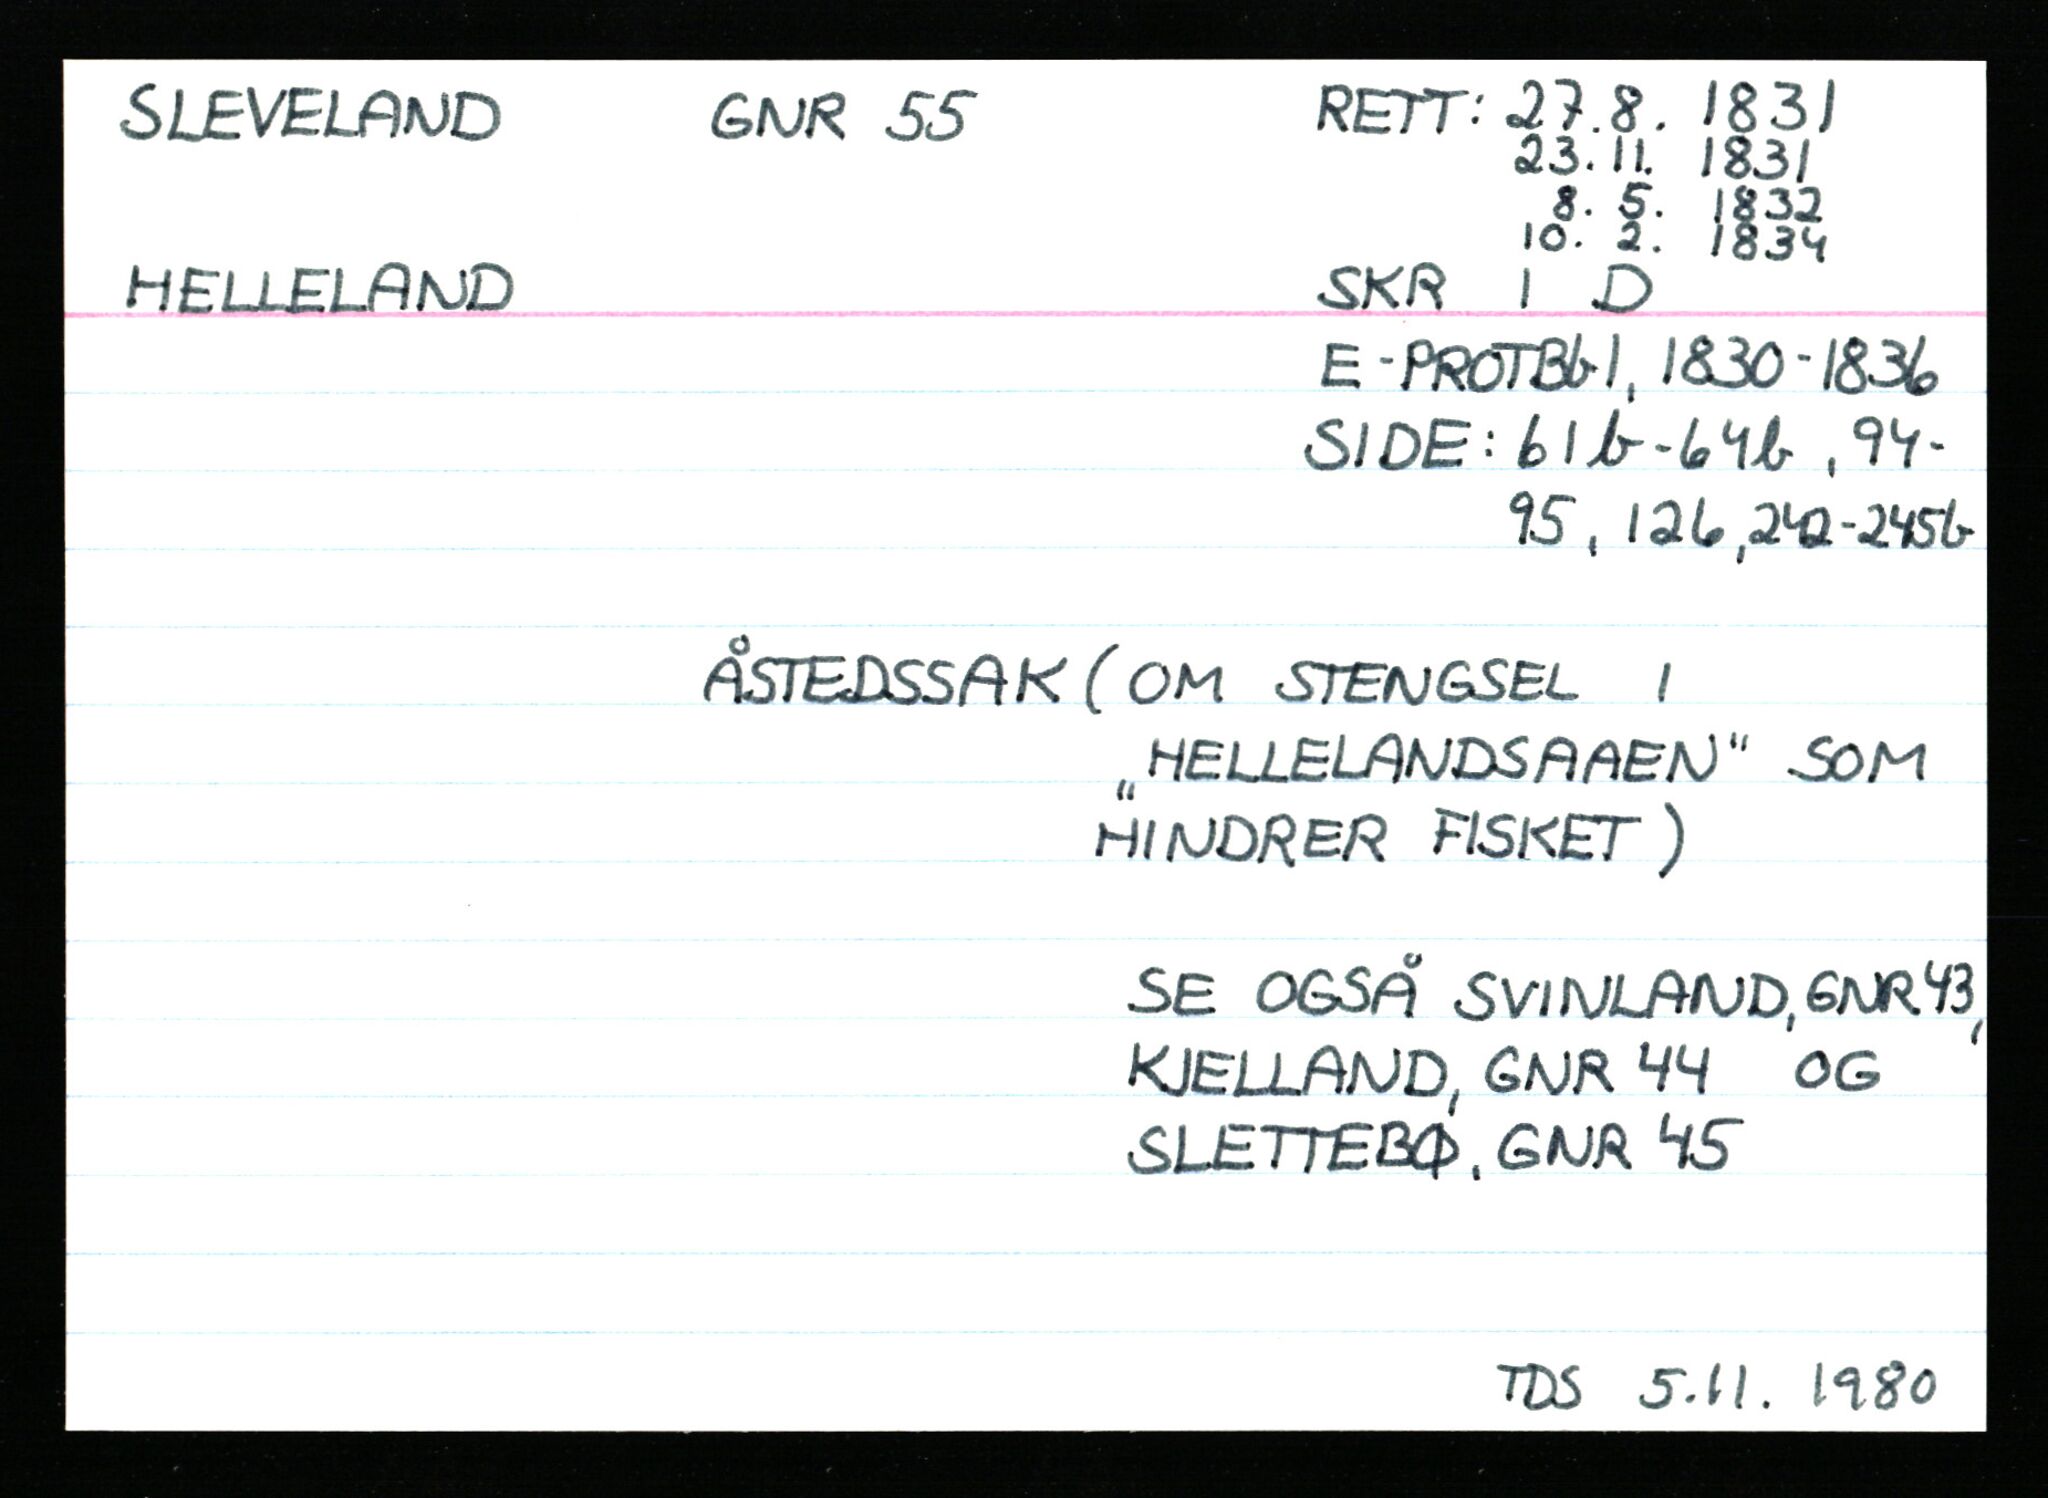 SLEVELAND GNR 55 RETT: 27.8. 1831
23.11. 1831
8. 5. 1832
10. 2. 1834
HELLELAND SKR 1 D
E-PROTBb1, 1830-1836
SIDE: 61b-64b, 94-
95, 126, 242-245b
ÅSTEDSSAK (OM STENGSEL I
„HELLELANDSAAEN" SOM
HINDRER FISKET)
SE OGSÅ SVINLAND, GNR 43,
KJELLAND, GNR 44 OG
SLETTEBØ, GNR 45
TDS 5.11. 1980